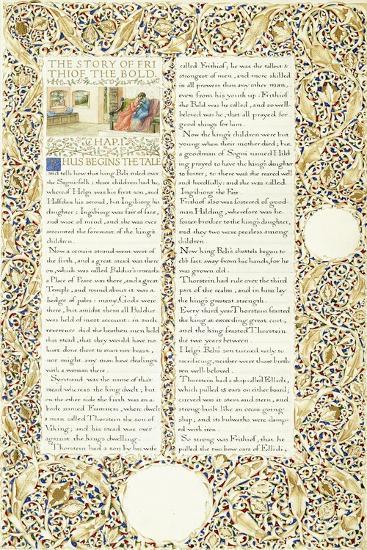 THE STORY OF FRI
THIOF THE BOLD.
CHAP. I.
THUS BEGINS THE TALE
and tells how that king Beli ruled over
the Sognefolk: three children had he,
whereof Helgi was his first son, and
Halfdan his second, but Ingibiorg his
daughter; Ingibiorg was fair of face,
and wise of mind, and she was ever
accounted the foremost of the king's
children.
Now a certain strand went west of
the firth, and a great stead was there
on, which was called Baldur's-meads
a Place of Peace was there, and a great
Temple, and round about it was a
hedge of pales: many Gods were
there, but amidst them all Baldur
was held of most account: in such
reverence did the heathen men hold
this stead, that they would have no
hurt done there to man nor beast,
nor might any man have dealings
with a woman there.
Syrstrand was the name of that
stead whereas the king dwelt; but
on the other side the firth was an a-
bode named Foreness, where dwelt
a man called Thorstein the son of
Viking; and his stead was over
against the king's dwelling.
Thorstein had a son by his wife
called Frithiof, he was the tallest &
strongest of men, and more skilled
in all prowess than any other man,
even from his youth up: Frithiof
the Bold was he called, and so well-
beloved was he, that all prayed for
good things for him.
Now the king's children were but
young when their mother died; but
a goodman of Sogni named Hild-
ing prayed to have the king's daughter
to foster; so there was she reared well
and heedfully: and she was called
Ingibiorg the Fair.
Frithiof also was fostered of good-
man Hilding, wherefore was he
foster-brother to the king's daughter,
and they two were peerless among
children.
Now king Beli's chattels began to
ebb fast away from his hands, for he
was grown old.
Thorstein had rule over the third
part of the realm, and in him lay
the king's greatest strength.
Every third year Thorstein feasted
the king at exceeding great cost,
and the king feasted Thorstein
the two years between.
Helgi Beli's son turned early to
sacrificing; neither were those breth-
ren well-beloved.
Thorstein had a ship called Ellida,
which pulled 15 oars on either board;
carved was it stem and stern, and
strong-built like an ocean-going
ship, and its bulwarks were clamp-
ed with iron.
So strong was Frithiof, that he
pulled the two bow oars of Ellida,